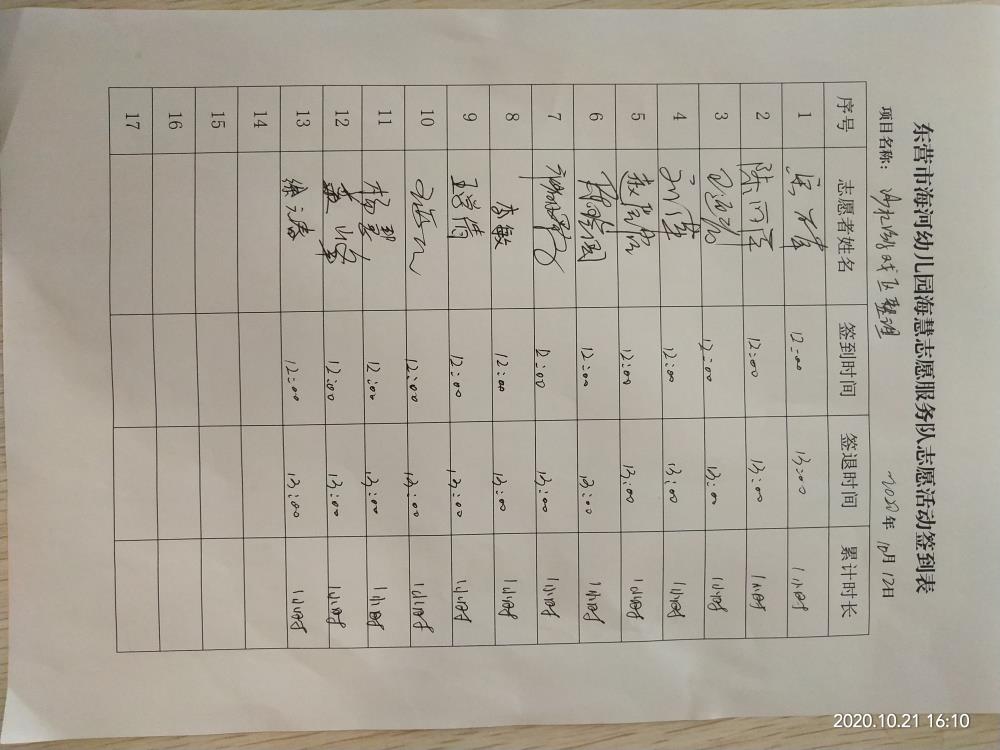 东营市海河幼儿园海慧志愿服务队志愿活动签到表
项目名称： 整理 2020年10月12日
序号 志愿者姓名 签到时间 签退时间 累计时长
1 12:00 13:00 1小时
2 陈雨 12:00 13:00 1小时
3 12:00 13:00 1小时
4 12:00 13:00 1小时
5 12:00 13:00 1小时
6 12:00 13:00 1小时
7 12:00 13:00 1小时
8 李敏 12:00 13:00 1小时
9 王学倩 12:00 13:00 1小时
10 12:00 13:00 1小时
11 杨 12:00 13:00 1小时
12 12:00 13:00 1小时
13 徐 12:00 13:00 1小时
14
15
16
17
2020.10.21 16:10